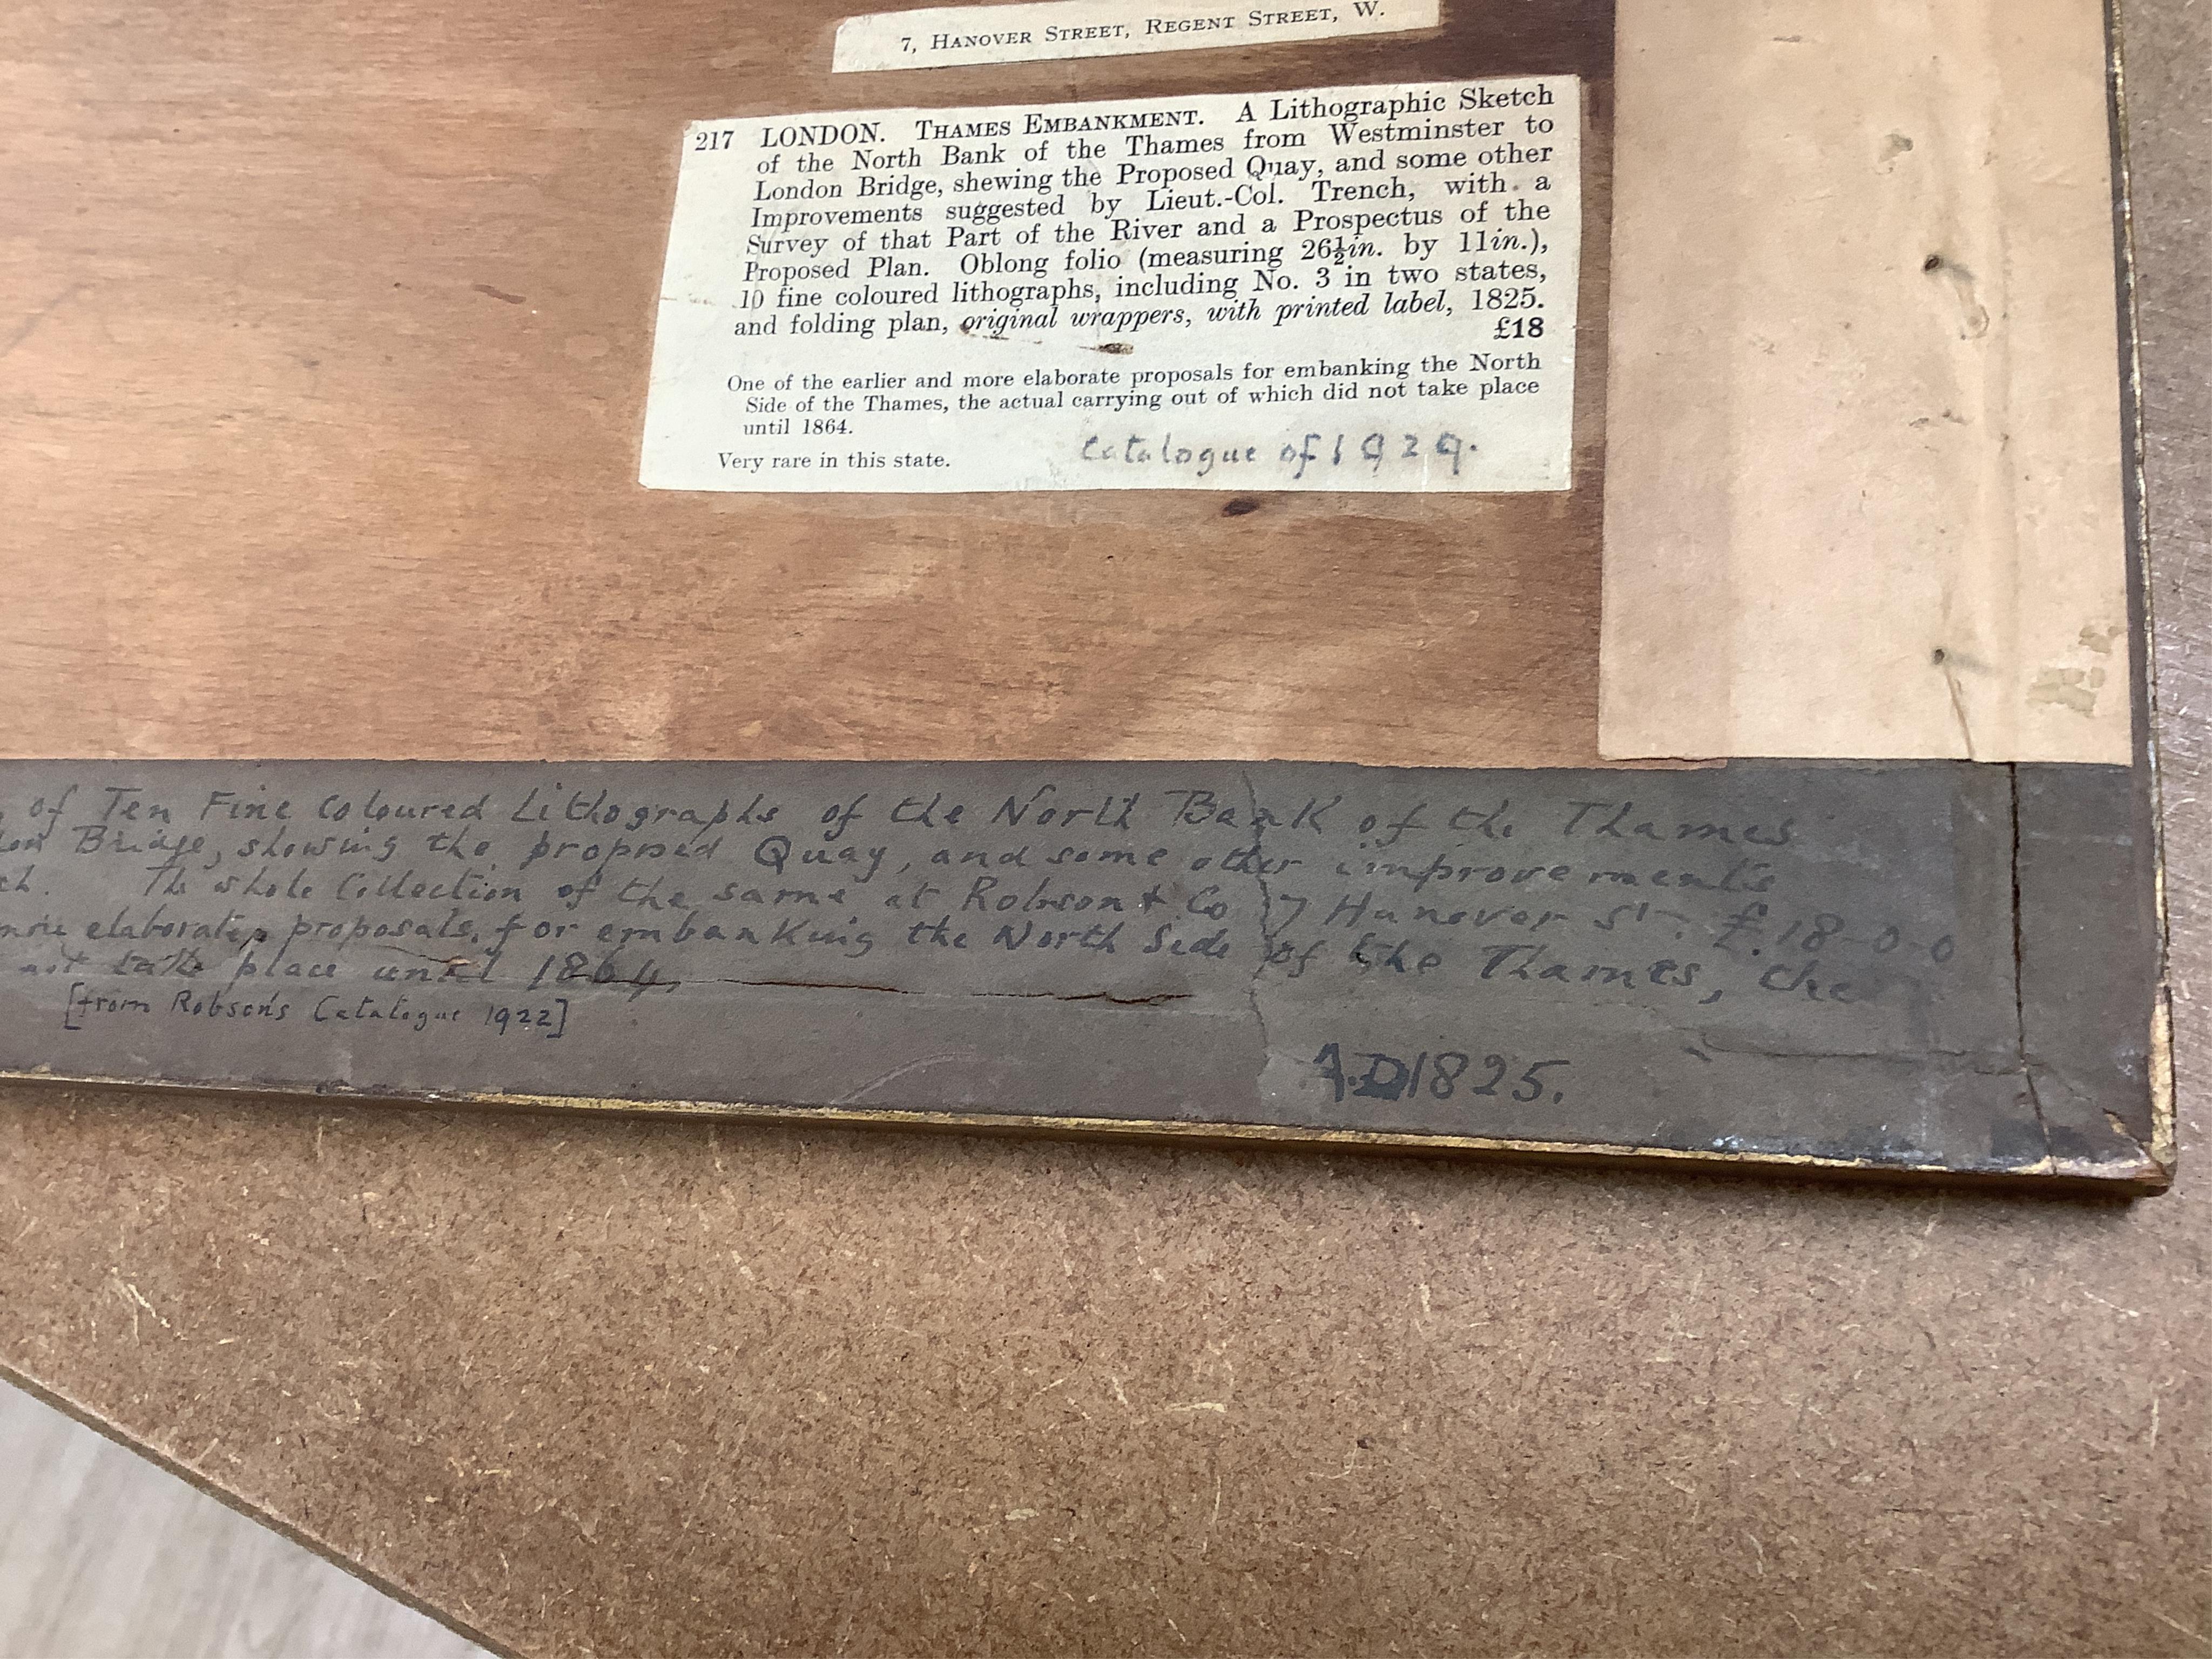 7, HANOVER STREET, REGENT STREET, W.
217 LONDON. THAMES EMBANKMENT. A Lithographic Sketch
of the North Bank of the Thames from Westminster to
London Bridge, shewing the Proposed Quay, and some other
Improvements suggested by Lieut.-Col. Trench, with a
Survey of that Part of the River and a Prospectus of the
Proposed Plan. Oblong folio (measuring 26½in. by 11in.),
10 fine coloured lithographs, including No. 3 in two states,
and folding plan, original wrappers, with printed label, 1825.
£18
One of the earlier and more elaborate proposals for embanking the North
Side of the Thames, the actual carrying out of which did not take place
until 1864.
Very rare in this state.
Catalogue of 1929.
of Ten Fine Coloured Lithographs of the North Bank of the Thames
Bridge, showing the proposed Quay, and some other improvements
The whole Collection of the same at Robson & Co 7 Hanover St. £.18-0-0
elaborate proposals, for embanking the North Side of the Thames, the
not take place until 1864,
[from Robson's Catalogue 1922]
A.D 1825.